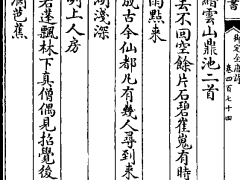 書
御定全唐詩
卷四百七十四
縉雲山鼎池二首
去不回空餘片石碧崔嵬有時
雨點來
成古今仙都凡有幾人尋到來
湖淺深
上人房
若蓬飄林下真僧偶見招覺後
滴芭蕉